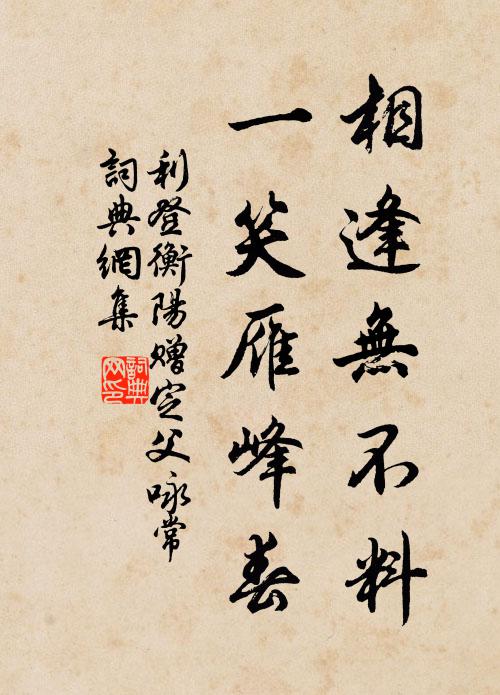 相逢無不料
一笑雁峰春
利登衡陽贈定父咏常
詞典網集
詞典網印